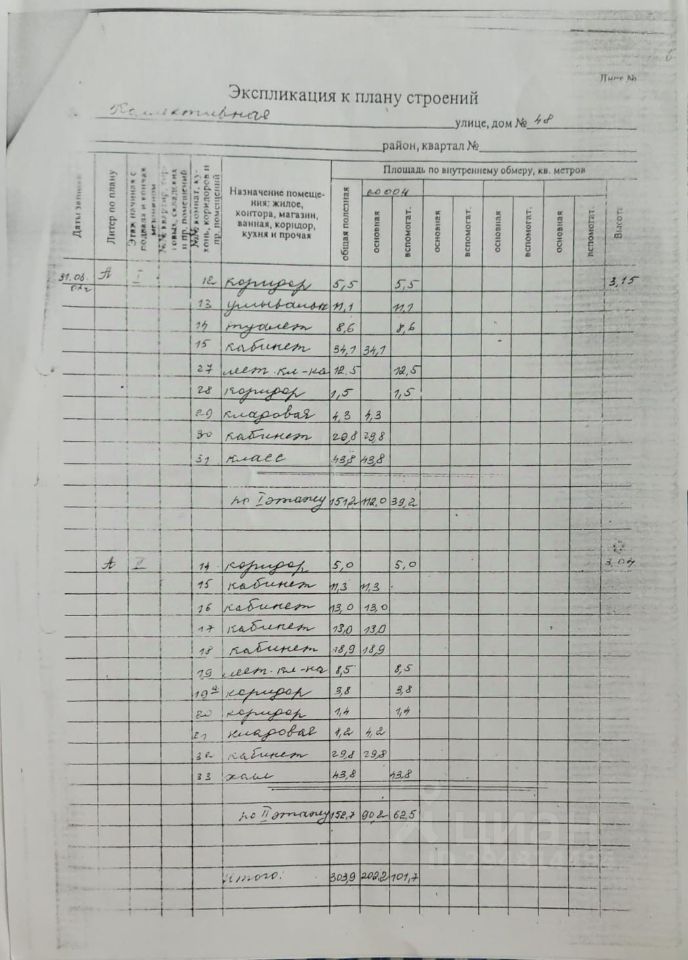 Лист №
Экспликация к плану строений
Коллективная улице, дом № 48
район, квартал №
Даты записи
Литер по плану
Этаж начиная с подвала и кончая мезонином
№№ комнат, кухонь, коридоров и пр. помещений
Назначение помещения: жилое, контора, магазин, ванная, коридор, кухня и прочая
Площадь по внутреннему обмеру, кв. метров
общая полезная
основная вспомогат. основная вспомогат. основная вспомогат. основная вспомогат.
Высота
31.08. А I 12 коридор 5,5 5,5 3,15
13 11,1 11,1
14 туалет 8,6 8,6
15 кабинет 34,1 34,1
27 лест. кл-ка 12,5 12,5
28 коридор 1,5 1,5
29 кладовая 4,3 4,3
30 кабинет 29,8 29,8
31 класс 43,8 43,8
по I этажу 151,2 112,0 39,2
А II 14 коридор 5,0 5,0 3,04
15 кабинет 11,3 11,3
16 кабинет 13,0 13,0
17 кабинет 13,0 13,0
18 кабинет 18,9 18,9
19 лест. кл-ка 8,5 8,5
19а коридор 3,8 3,8
20 коридор 1,4 1,4
21 кладовая 4,2 4,2
32 кабинет 29,8 29,8
33 холл 43,8 43,8
по II этажу 152,7 90,2 62,5
Итого: 303,9 202,2 101,7
Циан